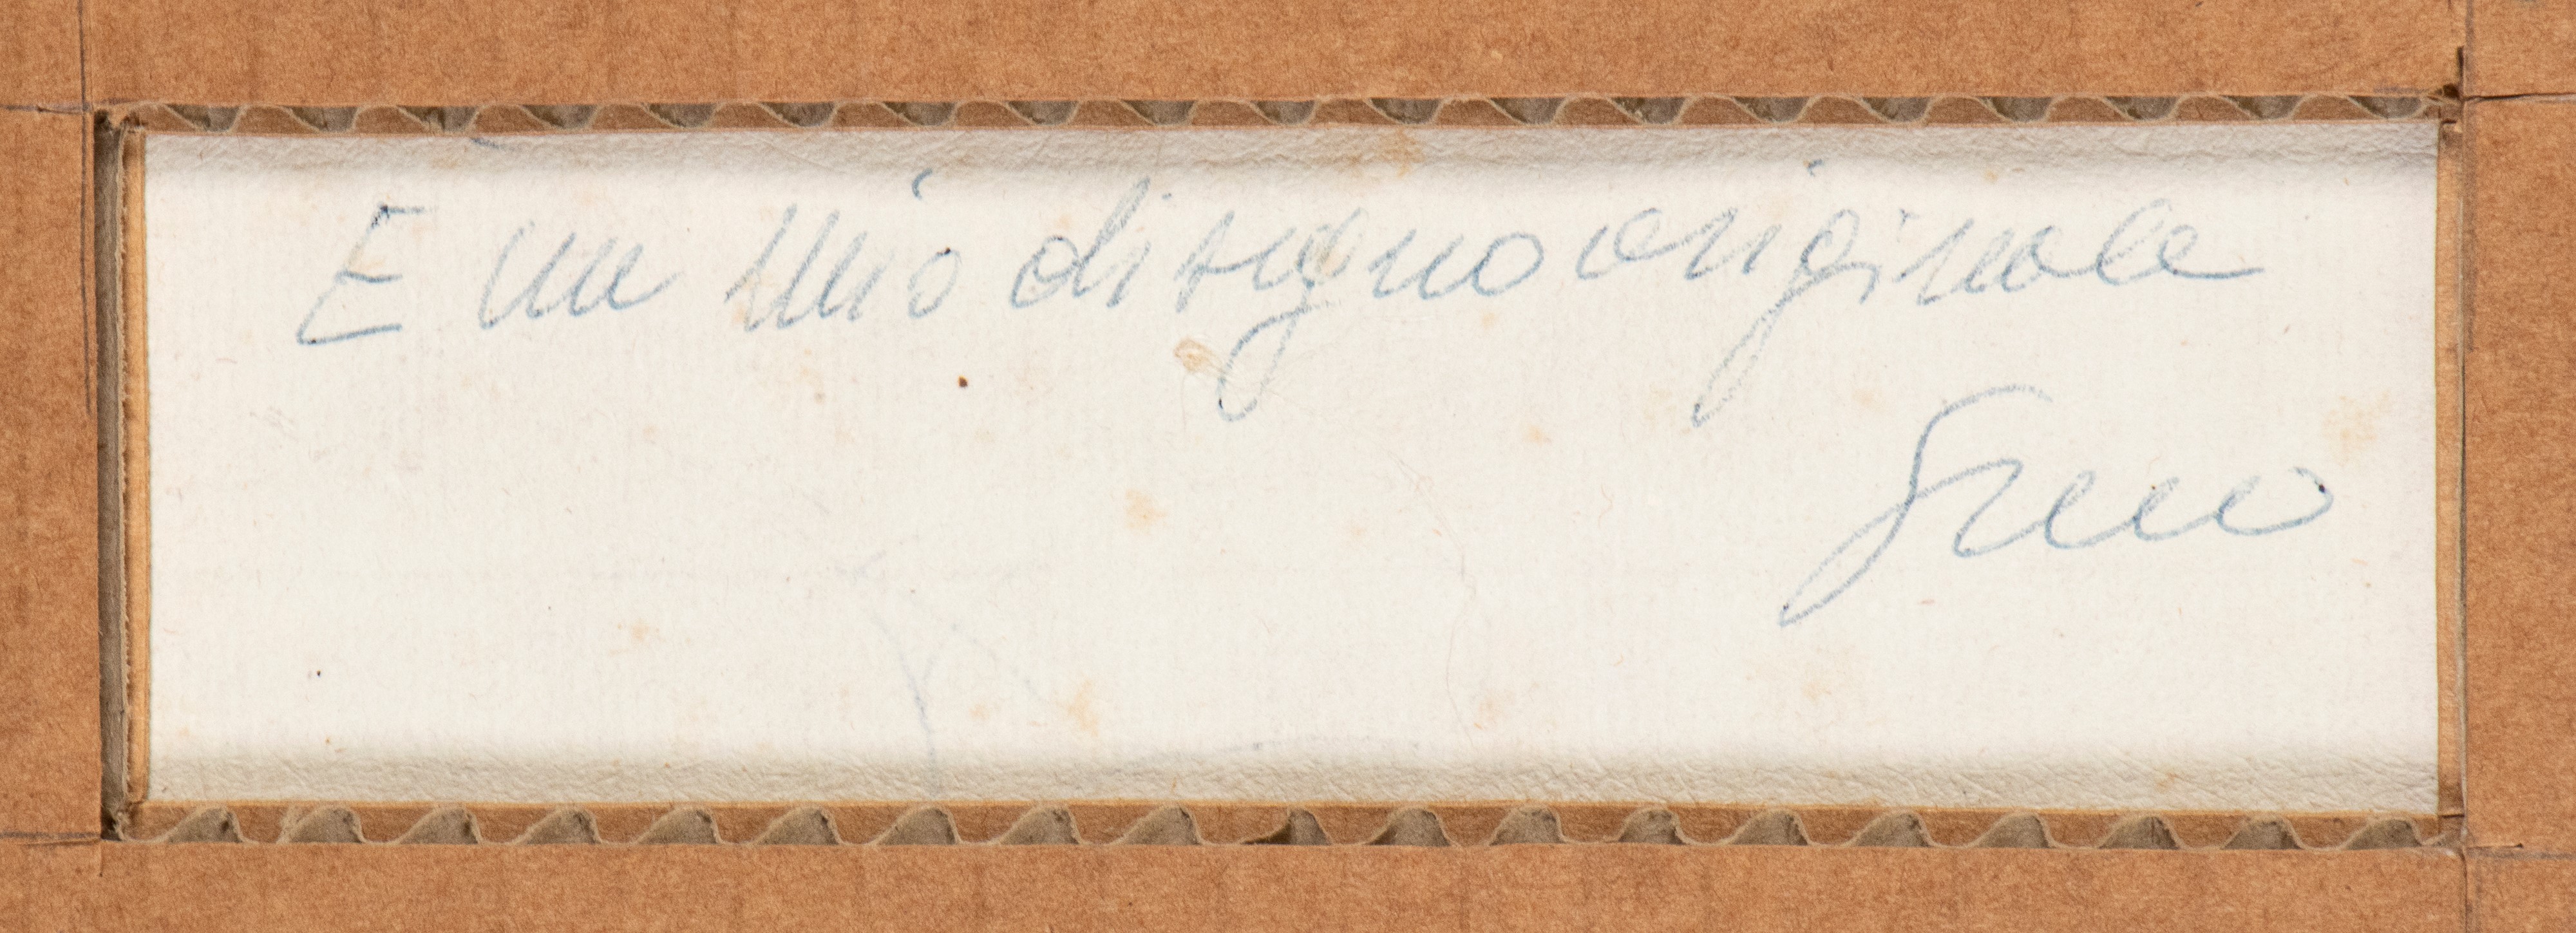 E un mio disegno originale
Greco